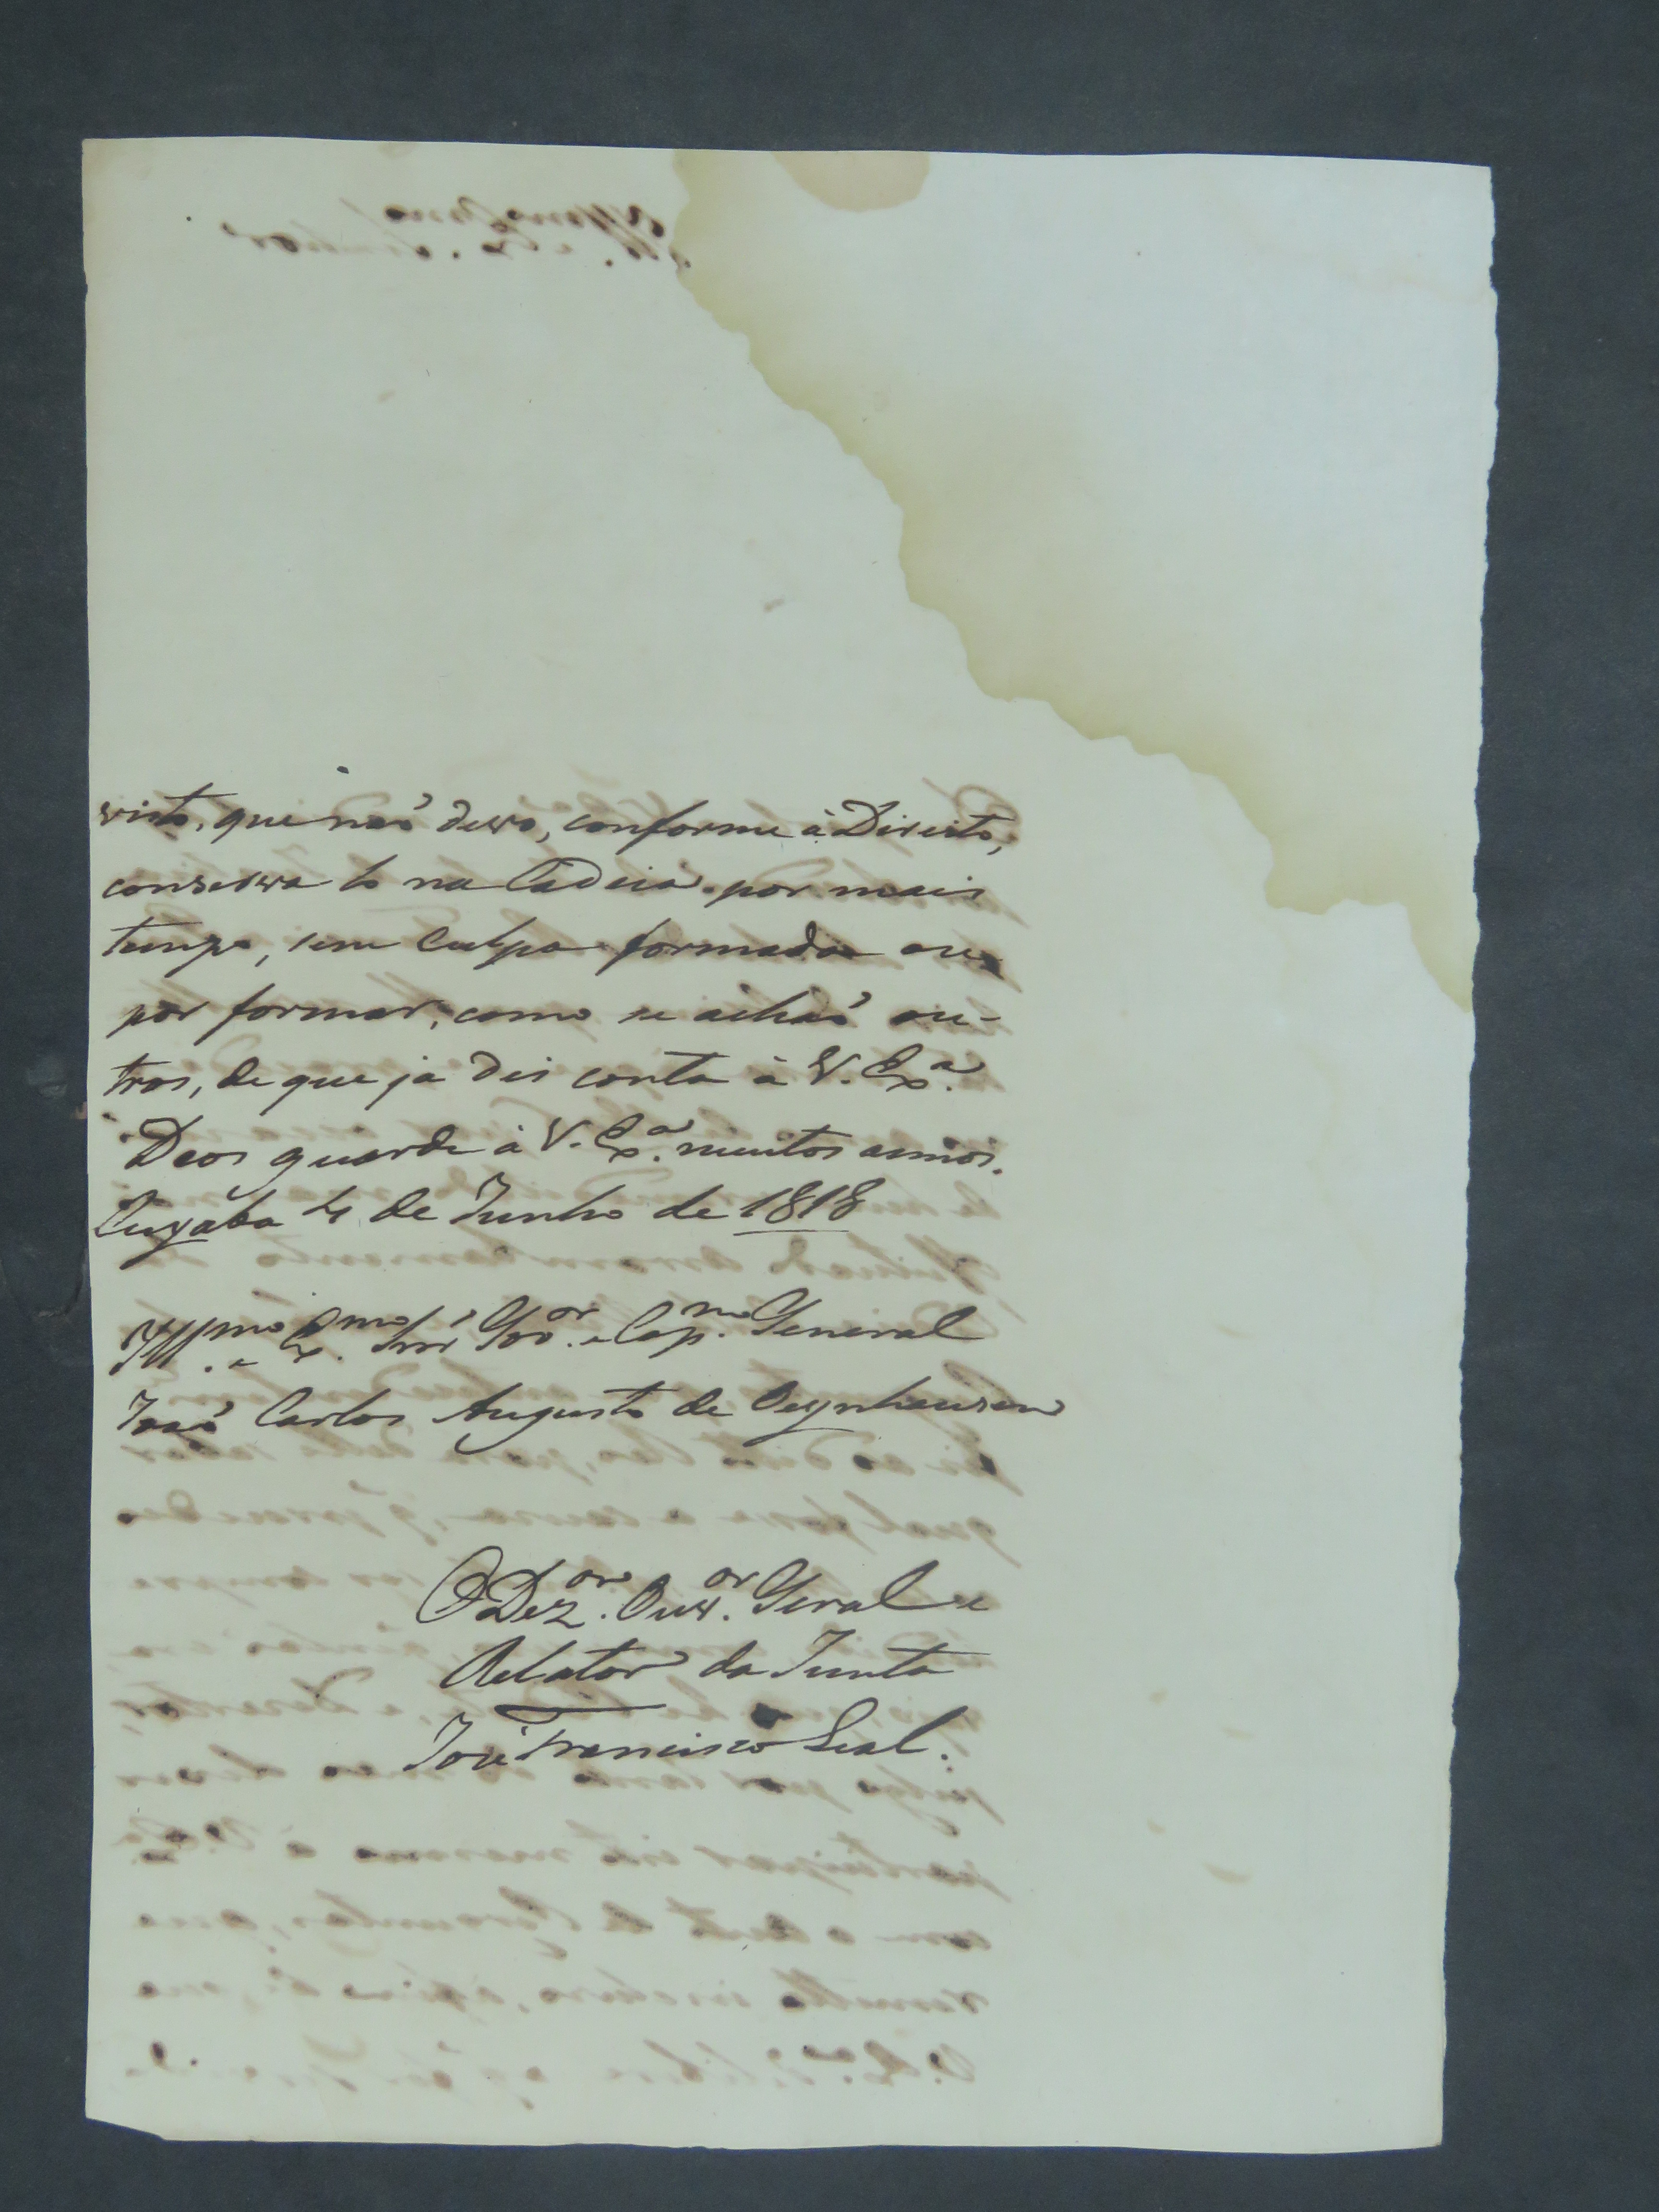 visto, que naó devo, conforme á Direito,
conserva lo na Cadeia por mais
tempo, sem Culpa formada ou
por formar, como se achaó ou-
tros, de que já dei conta á V. Ex.ª
Deos guarde á V. Ex.ª muitos annos.
Cuyaba 4 de Junho de 1818
Ill.mo e Ex.mo Snr Gov.or e Cap.m General
Joaó Carlos Augusto de Oeynhausen
O Dez.or Ouv.or Geral e
Relator da Junta
José Francisco Leal.